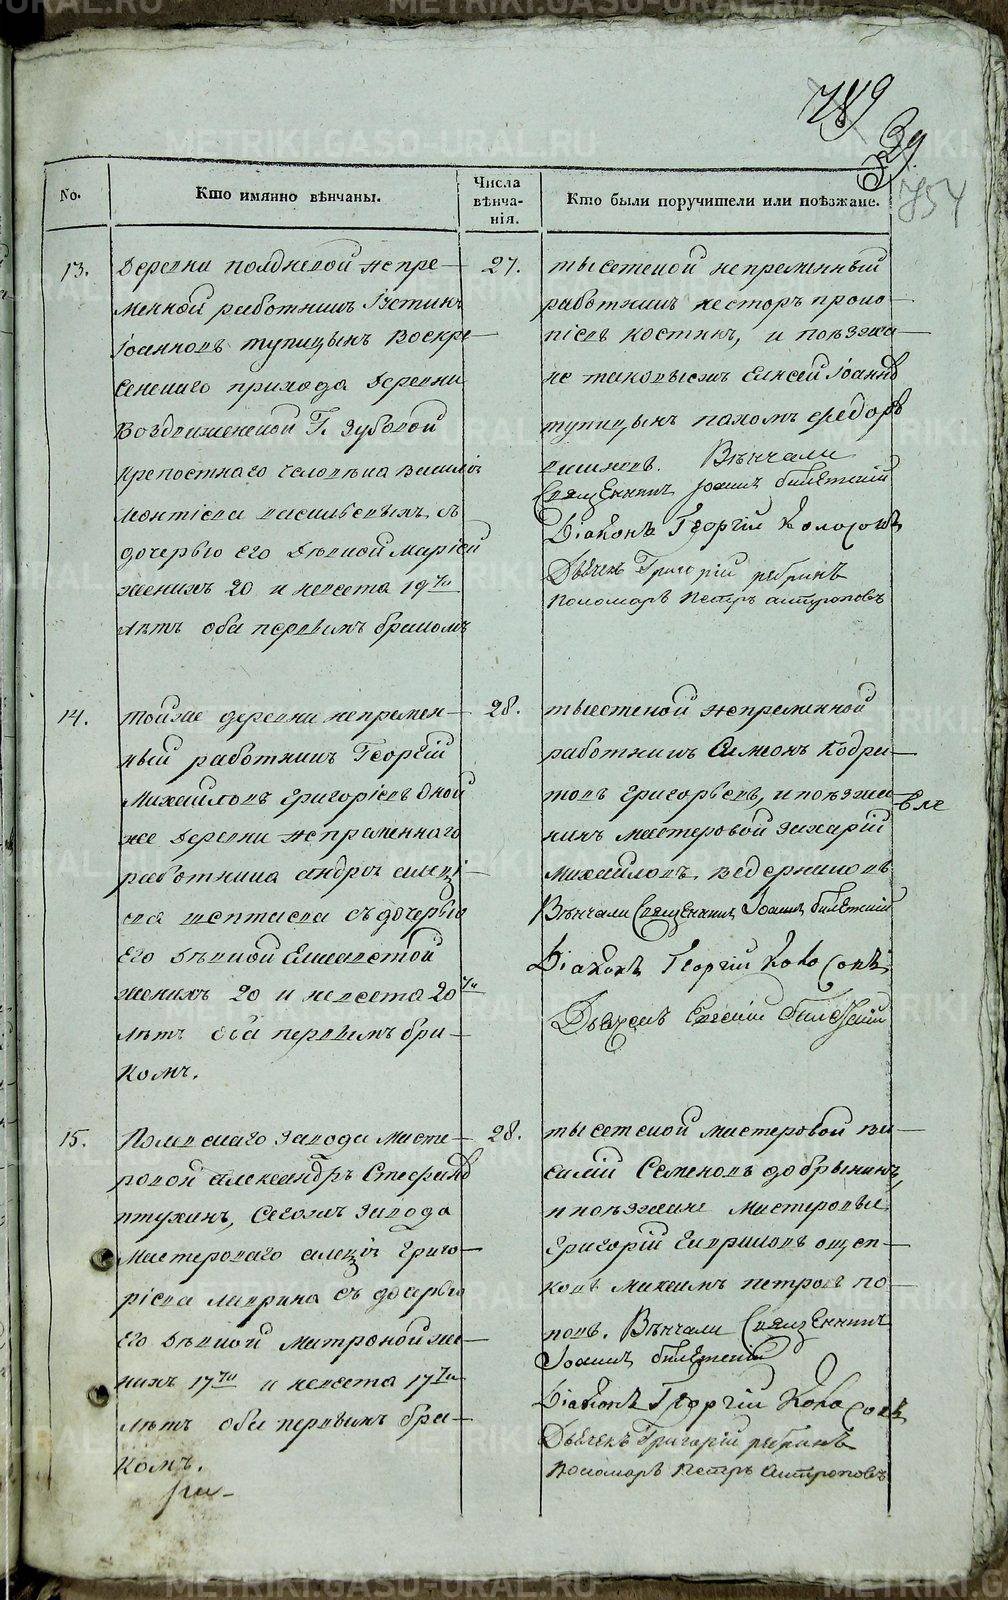 789
39
754
No.
Кто имянно вѣнчаны.
Числа вѣнча-нія.
Кто были поручители или поѣзжане.
13.
Деревни полдневой непре-
менной работникъ Іустинъ
Іоанновъ тупицынъ Воскре-
сенскаго прихода деревни
Воздвиженской Г. зубовой
крепостнаго человѣка
васильевыхъ съ
дочерью его дѣвкой Маріей
женихъ 20 и невеста 19ти
лѣтъ оба первымъ бракомъ
27.
тысетской непременный
работникъ несторъ проко-
піевъ костинъ, и поѣзжа-
не таковыежъ Елисей Іоанновъ
тупицынъ пахомъ федоровъ
Вѣнчали
Священникъ Іоаннъ
Діаконъ Георгій Колосовъ
Дьячекъ Григорій рябринъ
Пономарь Петръ антроповъ
14.
тойже деревни непремен-
ный работникъ Георгій
Михайловъ григоріевъ оной
же деревни непременнаго
работника андрея алексі-
ева съ дочерью
его дѣвкой Елисаветой
женихъ 20 и невеста 20ти
лѣтъ оба первымъ бра-
комъ.
28.
тысетской непременной
работникъ Симеонъ кодра-
товъ григорьевъ, и поѣзжа-
нинъ мастеровой захарій
Михайловъ ведерниковъ
Вѣнчали Священникъ Іоаннъ
Діаконъ Георгій Колосовъ
Дьячекъ Евгеній
15.
Полевскаго завода масте-
ровой александръ Стефановъ
птухинъ, Сегожъ завода
Мастероваго алексія григо-
ріева лаврина съ дочерью
его дѣвкой Матроной же-
нихъ 17ти и невеста 17ти
лѣтъ оба первымъ бра-
комъ.
28.
тысетской мастеровой ва-
силій Семеновъ добрынинъ,
и поѣзжане Мастеровые
Григорій Гавриловъ ощеп-
ковъ Максимъ петровъ по-
повъ. Вѣнчали Священникъ
Іоаннъ
Діаконъ Георгій Колосовъ
Дьячекъ Григорій рябринъ
Пономарь Петръ Антроповъ
METRIKI.GASO-URAL.RU